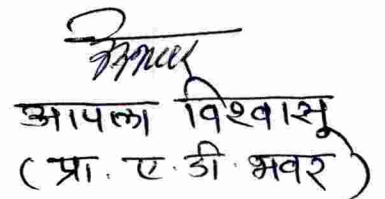 आपला विश्वासू
( प्रा. ए. डी. भवर )